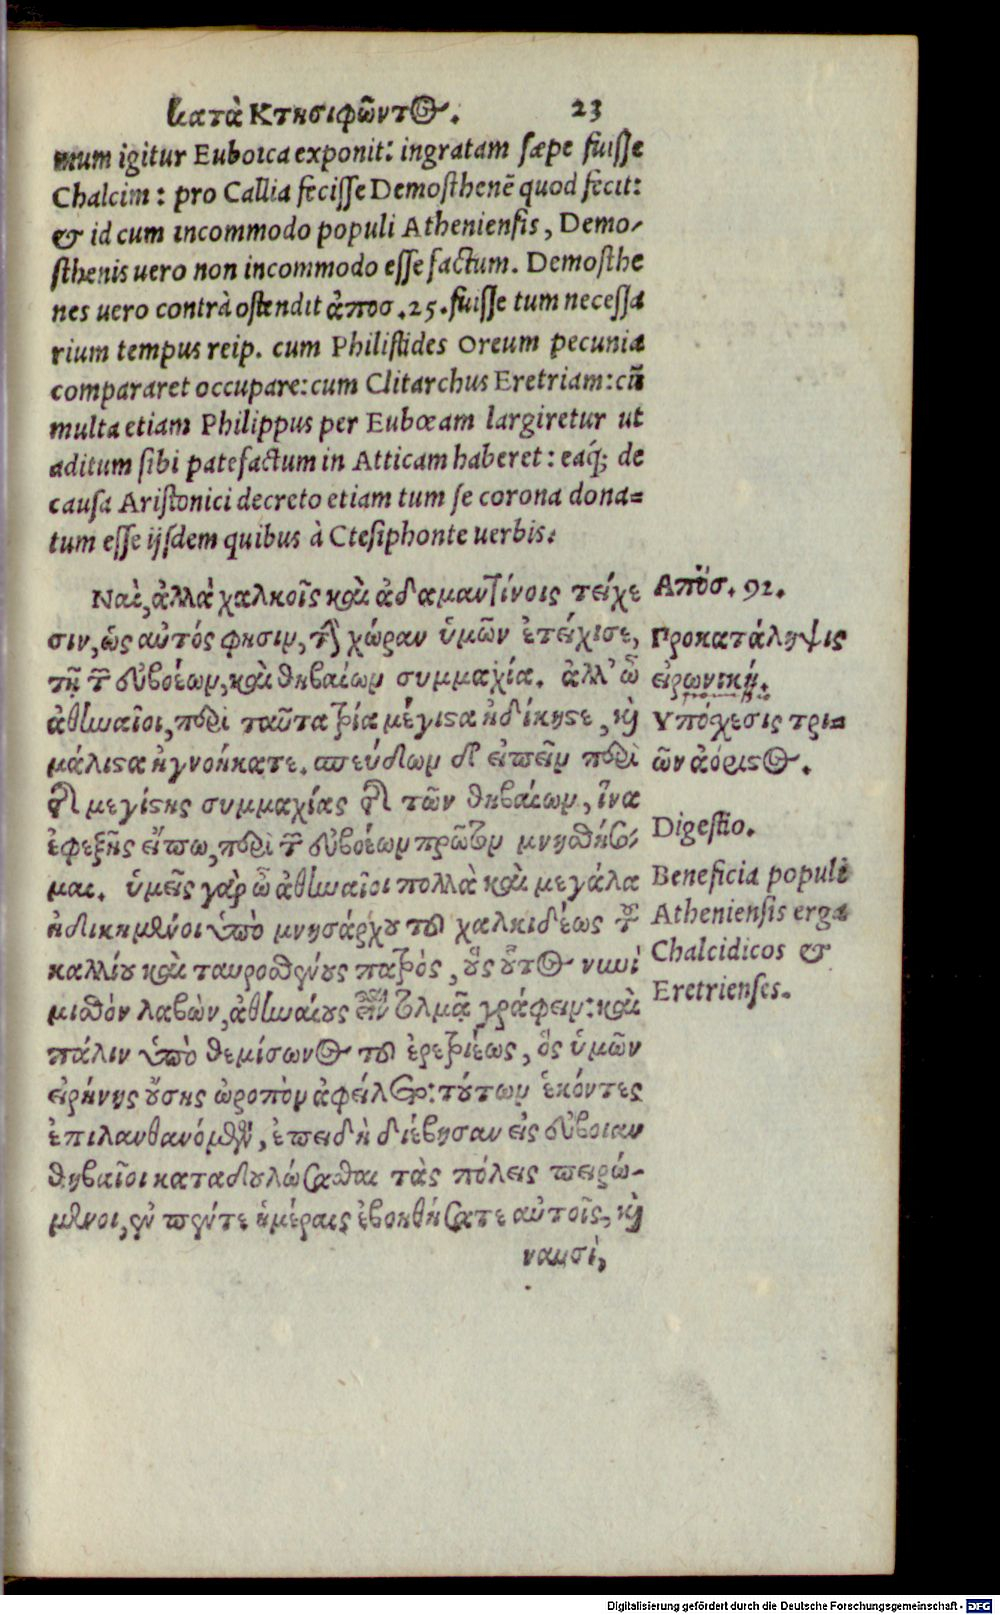 κατὰ Κτησιφῶντος. 23
mum igitur Euboica exponit: ingratam sæpe fuisse
Chalcim: pro Callia fecisse Demosthenẽ quod fecit:
& id cum incommodo populi Atheniensis, Demo-
sthenis uero non incommodo esse factum. Demosthe
nes uero contrà ostendit ἀποσ. 25. fuisse tum necessa
rium tempus reip. cum Philistides Oreum pecunia
compararet occupare: cum Clitarchus Eretriam: cũ
multa etiam Philippus per Eubœam largiretur ut
aditum sibi patefactum in Atticam haberet: eaq́; de
causa Aristonici decreto etiam tum se corona dona=
tum esse ijsdem quibus à Ctesiphonte uerbis.
Ναὶ, ἀλλὰ χαλκοῖς καὶ ἀδαμαντίνοις τείχε
σιν, ὡς αὐτός φησιν, τὴν χώραν ὑμῶν ἐτείχισε,
τῇ τῶν εὐβοέων, καὶ θηβαίων συμμαχία. ἀλλ' ὦ
ἀθηναῖοι, περὶ ταῦτα τρία μέγιστα ἠδίκησε, καὶ
μάλιστα ἠγνοήκατε. σπεύδων δὲ εἰπεῖν περὶ
τῆς μεγίστης συμμαχίας τῆς τῶν θηβαίων, ἵνα
ἐφεξῆς εἴπω, περὶ τῶν εὐβοέων πρῶτον μνησθήσο-
μαι. ὑμεῖς γὰρ ὦ ἀθηναῖοι πολλὰ καὶ μεγάλα
ἠδικημένοι ὑπὸ μνησάρχου τοῦ χαλκιδέως τοῦ
καλλίου καὶ ταυροσθένους πατρὸς, οὓς οὗτος νυνὶ
μισθὸν λαβὼν, ἀθηναίους εἶναι τολμᾷ γράφειν: καὶ
πάλιν ὑπὸ θεμίσωνος τοῦ ἐρετριέως, ὃς ὑμῶν
εἰρήνης οὔσης ὠροπὸν ἀφείλετο: τούτων ἑκόντες
ἐπιλανθανόμενοι, ἐπειδὴ διέβησαν εἰς εὔβοιαν
θηβαῖοι καταδουλώσασθαι τὰς πόλεις πειρώ-
μενοι, ἐν πέντε ἡμέραις ἐβοηθήσατε αὐτοῖς, καὶ
ναυσὶ,
Απόσ. 92.
Προκατάληψις
εἰρωνική.
Υπόσχεσις τρι=
ῶν ἀόριστος.
Digestio.
Beneficia populi
Atheniensis erga
Chalcidicos &
Eretrienses.
Digitalisierung gefördert durch die Deutsche Forschungsgemeinschaft - DFG